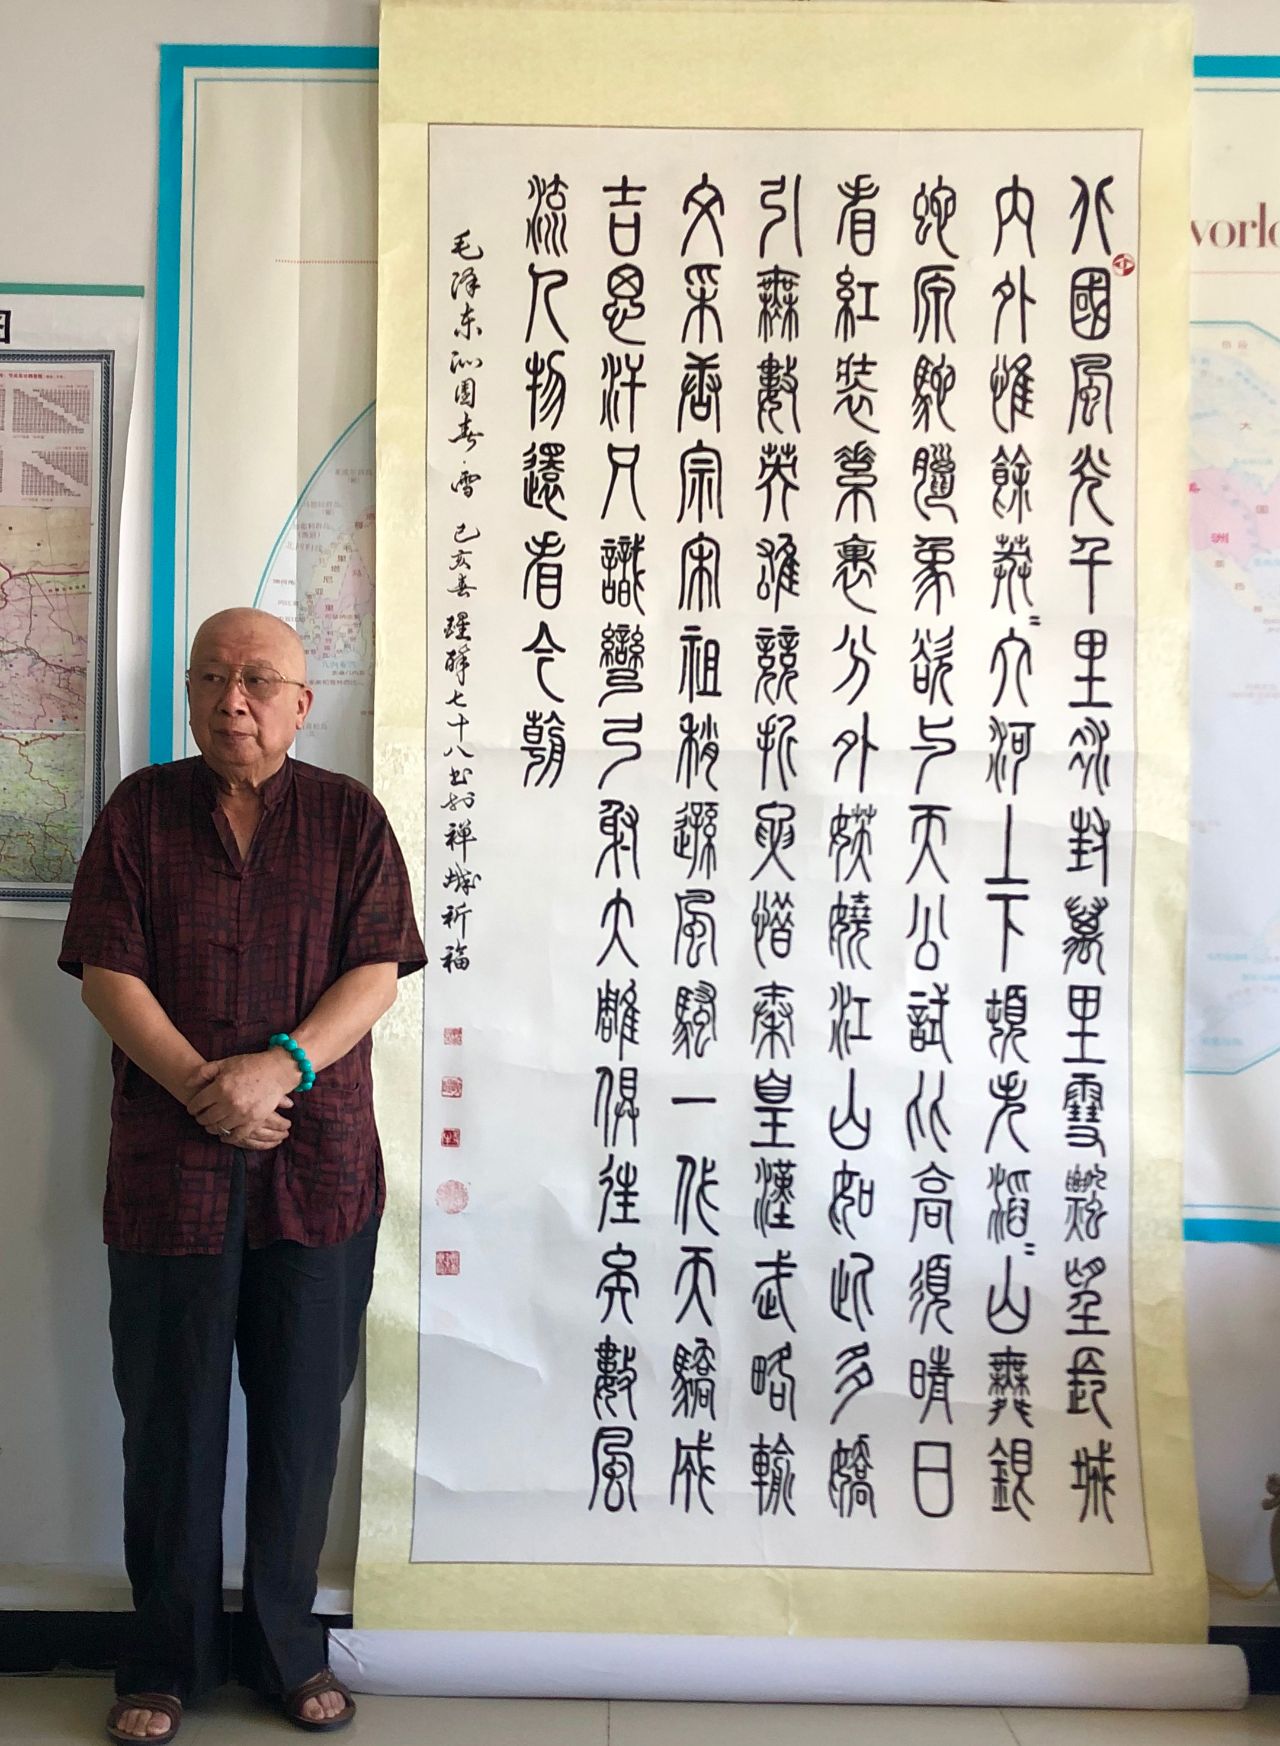 北國風光千里冰封萬里雪飄望長城
內外惟餘莽〻大河上下頓失滔〻山舞銀
蛇原馳臘象欲与天公試比高須晴日
看紅裝素裹分外妖嬈江山如此多嬌
引無數英雄競折腰惜秦皇漢武略輸
文采唐宗宋祖稍遜風騷一代天驕成
吉思汗只識彎弓射大雕俱往矣數風
流人物還看今朝
毛泽东沁園春·雪 己亥春 七十八书於禅城祈福
world